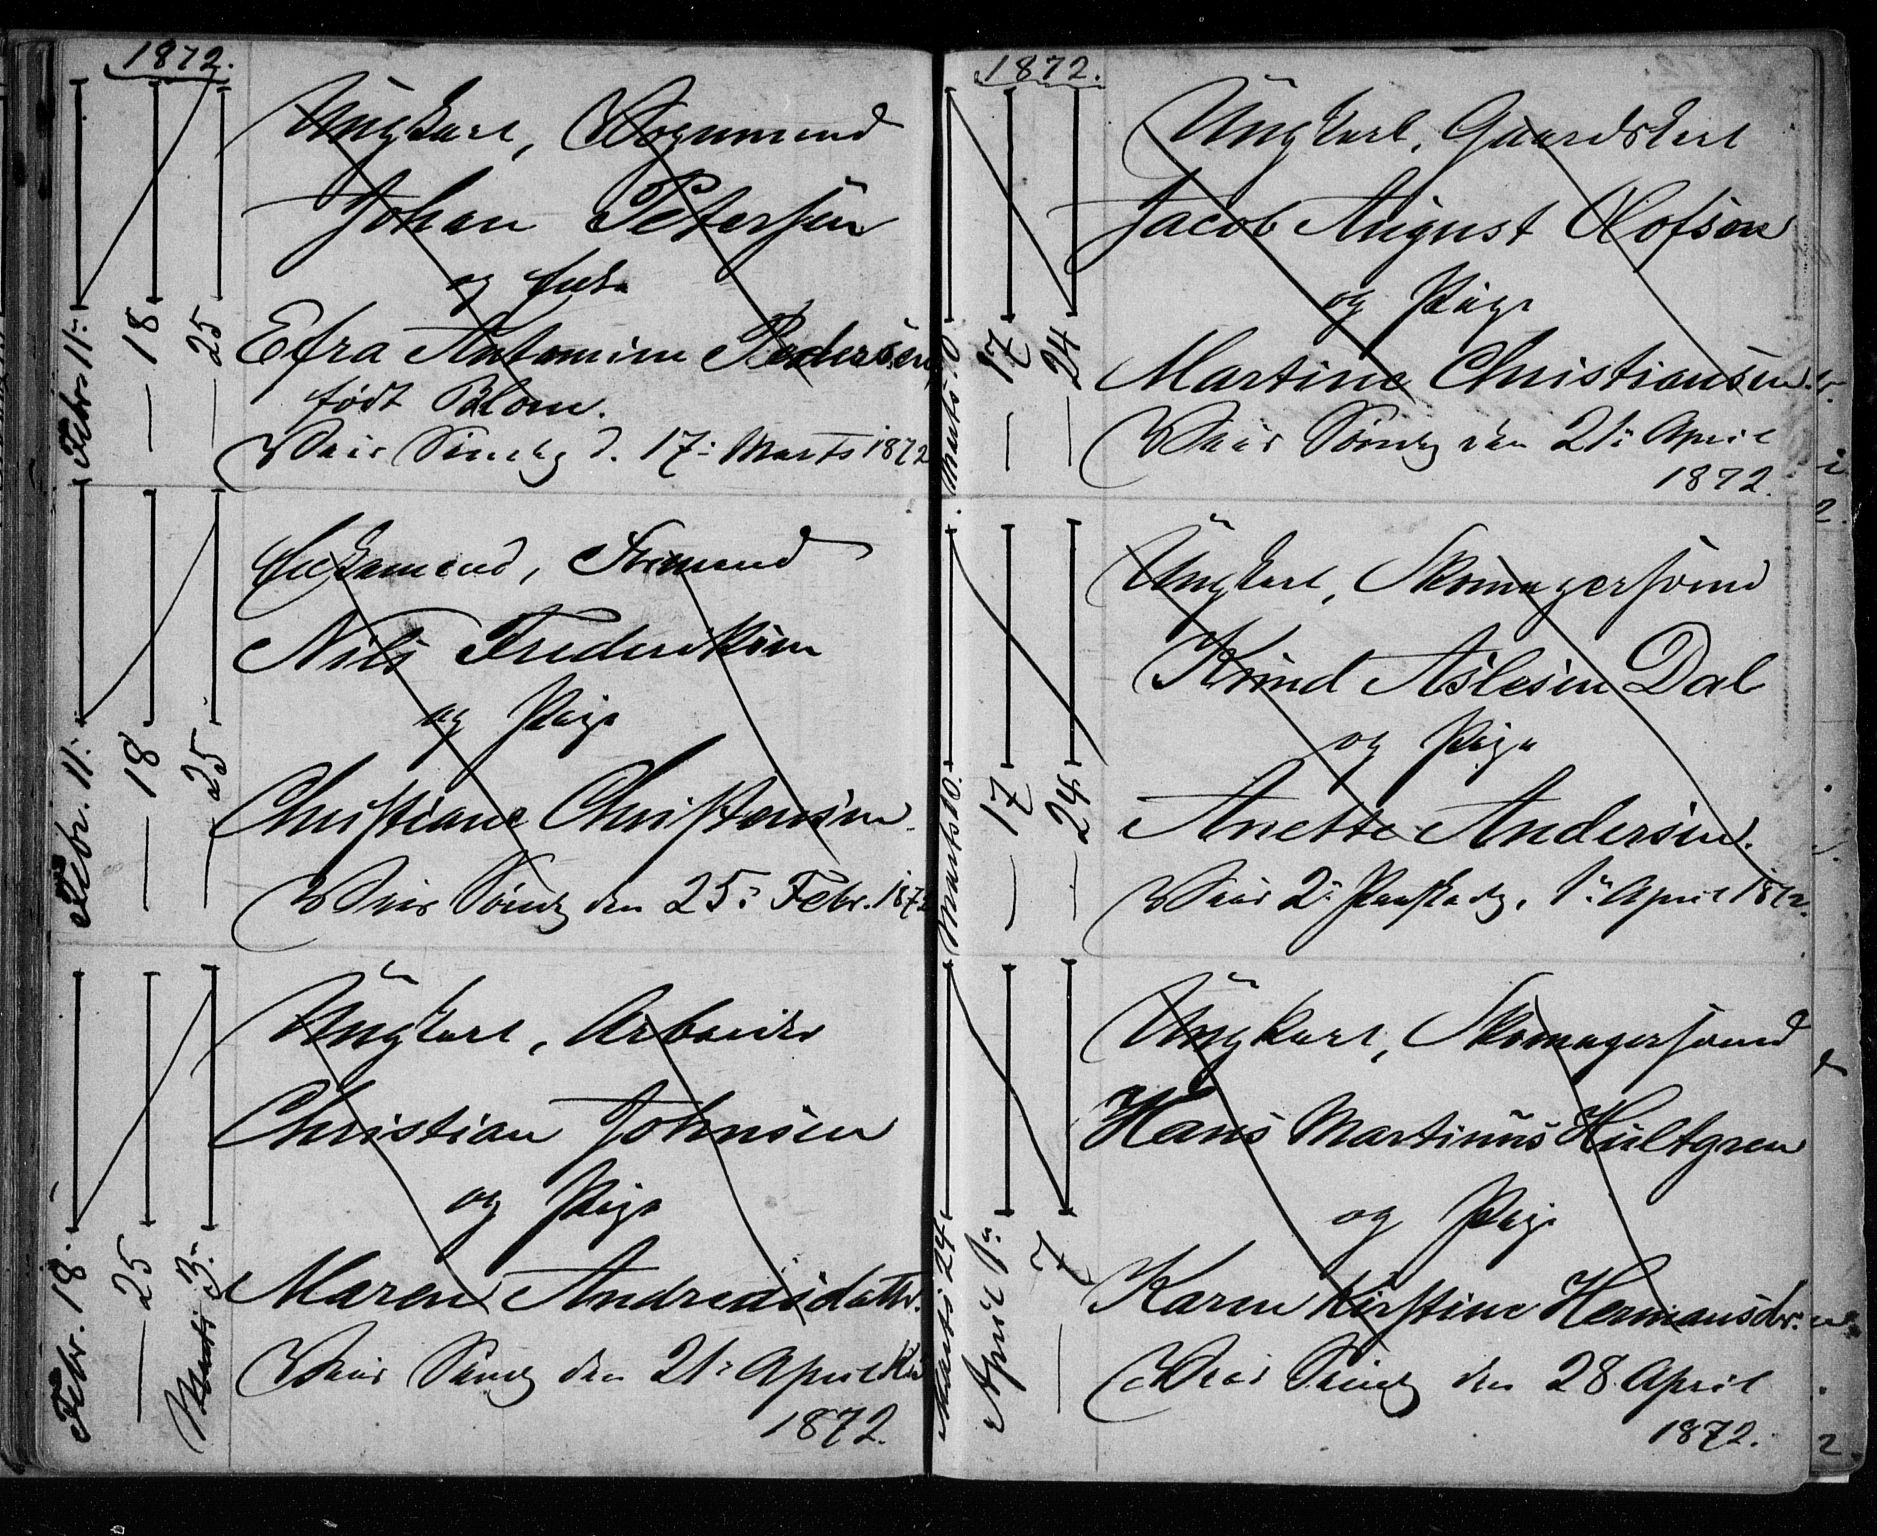 1872.
Febr. 11.
— 18
— 25
Ungkarl, Vognmand
Johan Petersen
og Enke
Efra Antomine Pedersen,
født Blom.
Viet Søndag d. 17. Marts 1872
Febr. 11.
— 18
— 25
Enkemand, Formand
Nils Frederiksen
og Pige
Christiane Christensen.
Viet Søndg den 25. Febr. 1872
Febr. 18.
— 25
Marts 3.
Ungkarl, Arbeider
Christian Johnsen
og Pige
Maren Andreasdatter.
Viet Søndg den 21. April
1872.
1872.
Marts 10.
— 17
— 24
Ungkarl, Gaardskarl
Jacob August Olofson
og Pige
Martine Christiansen.
Viet Søndg den 21. April
1872.
Marts 10.
— 17
— 24.
Ungkarl, Skomagersvend
Knud Aslesen Dal
og Pige
Anette Andersen.
Viet 2. Paaskedg. 1. April 1872.
Marts 24
April 1.
— 7
Ungkarl, Skomagersvend
Hans Martinus Hultgren
og Pige
Karen Kirstine Hermansdr.
Viet Søndg den 28. April
1872.